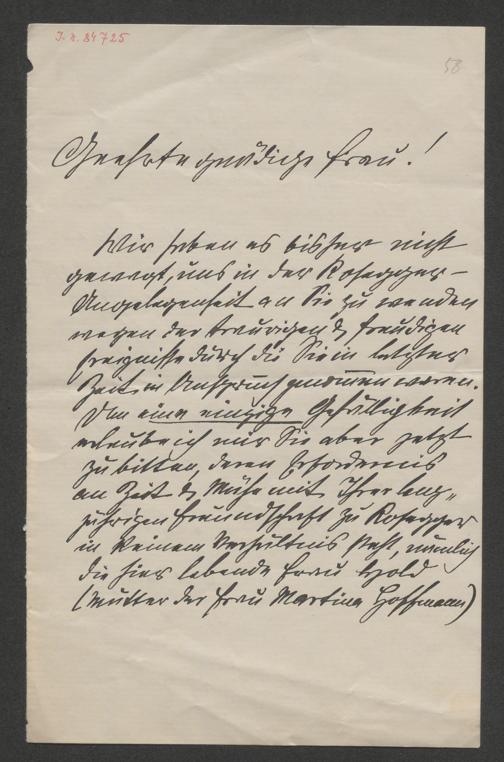 J. N. 84725
58
Geehrte gnädige Frau!
Wir haben es bisher nicht
gewagt, uns in der Rosegger-
Angelegenheit an Sie zu wenden
wegen der traurigen & freudigen
Ereignisse durch die Sie in letzter
Zeit in Anspruch genommen waren.
Um eine einzige Gefälligkeit
erlaube ich mir Sie aber jetzt
zu bitten, deren Erfordernis
an Zeit & Mühe mit Ihrer lang-
jährigen Freundschaft zu Rosegger
in keinem Verhältnis steht, nämlich
die hier lebende Frau
(Mutter der Frau Martina Hoffmann)